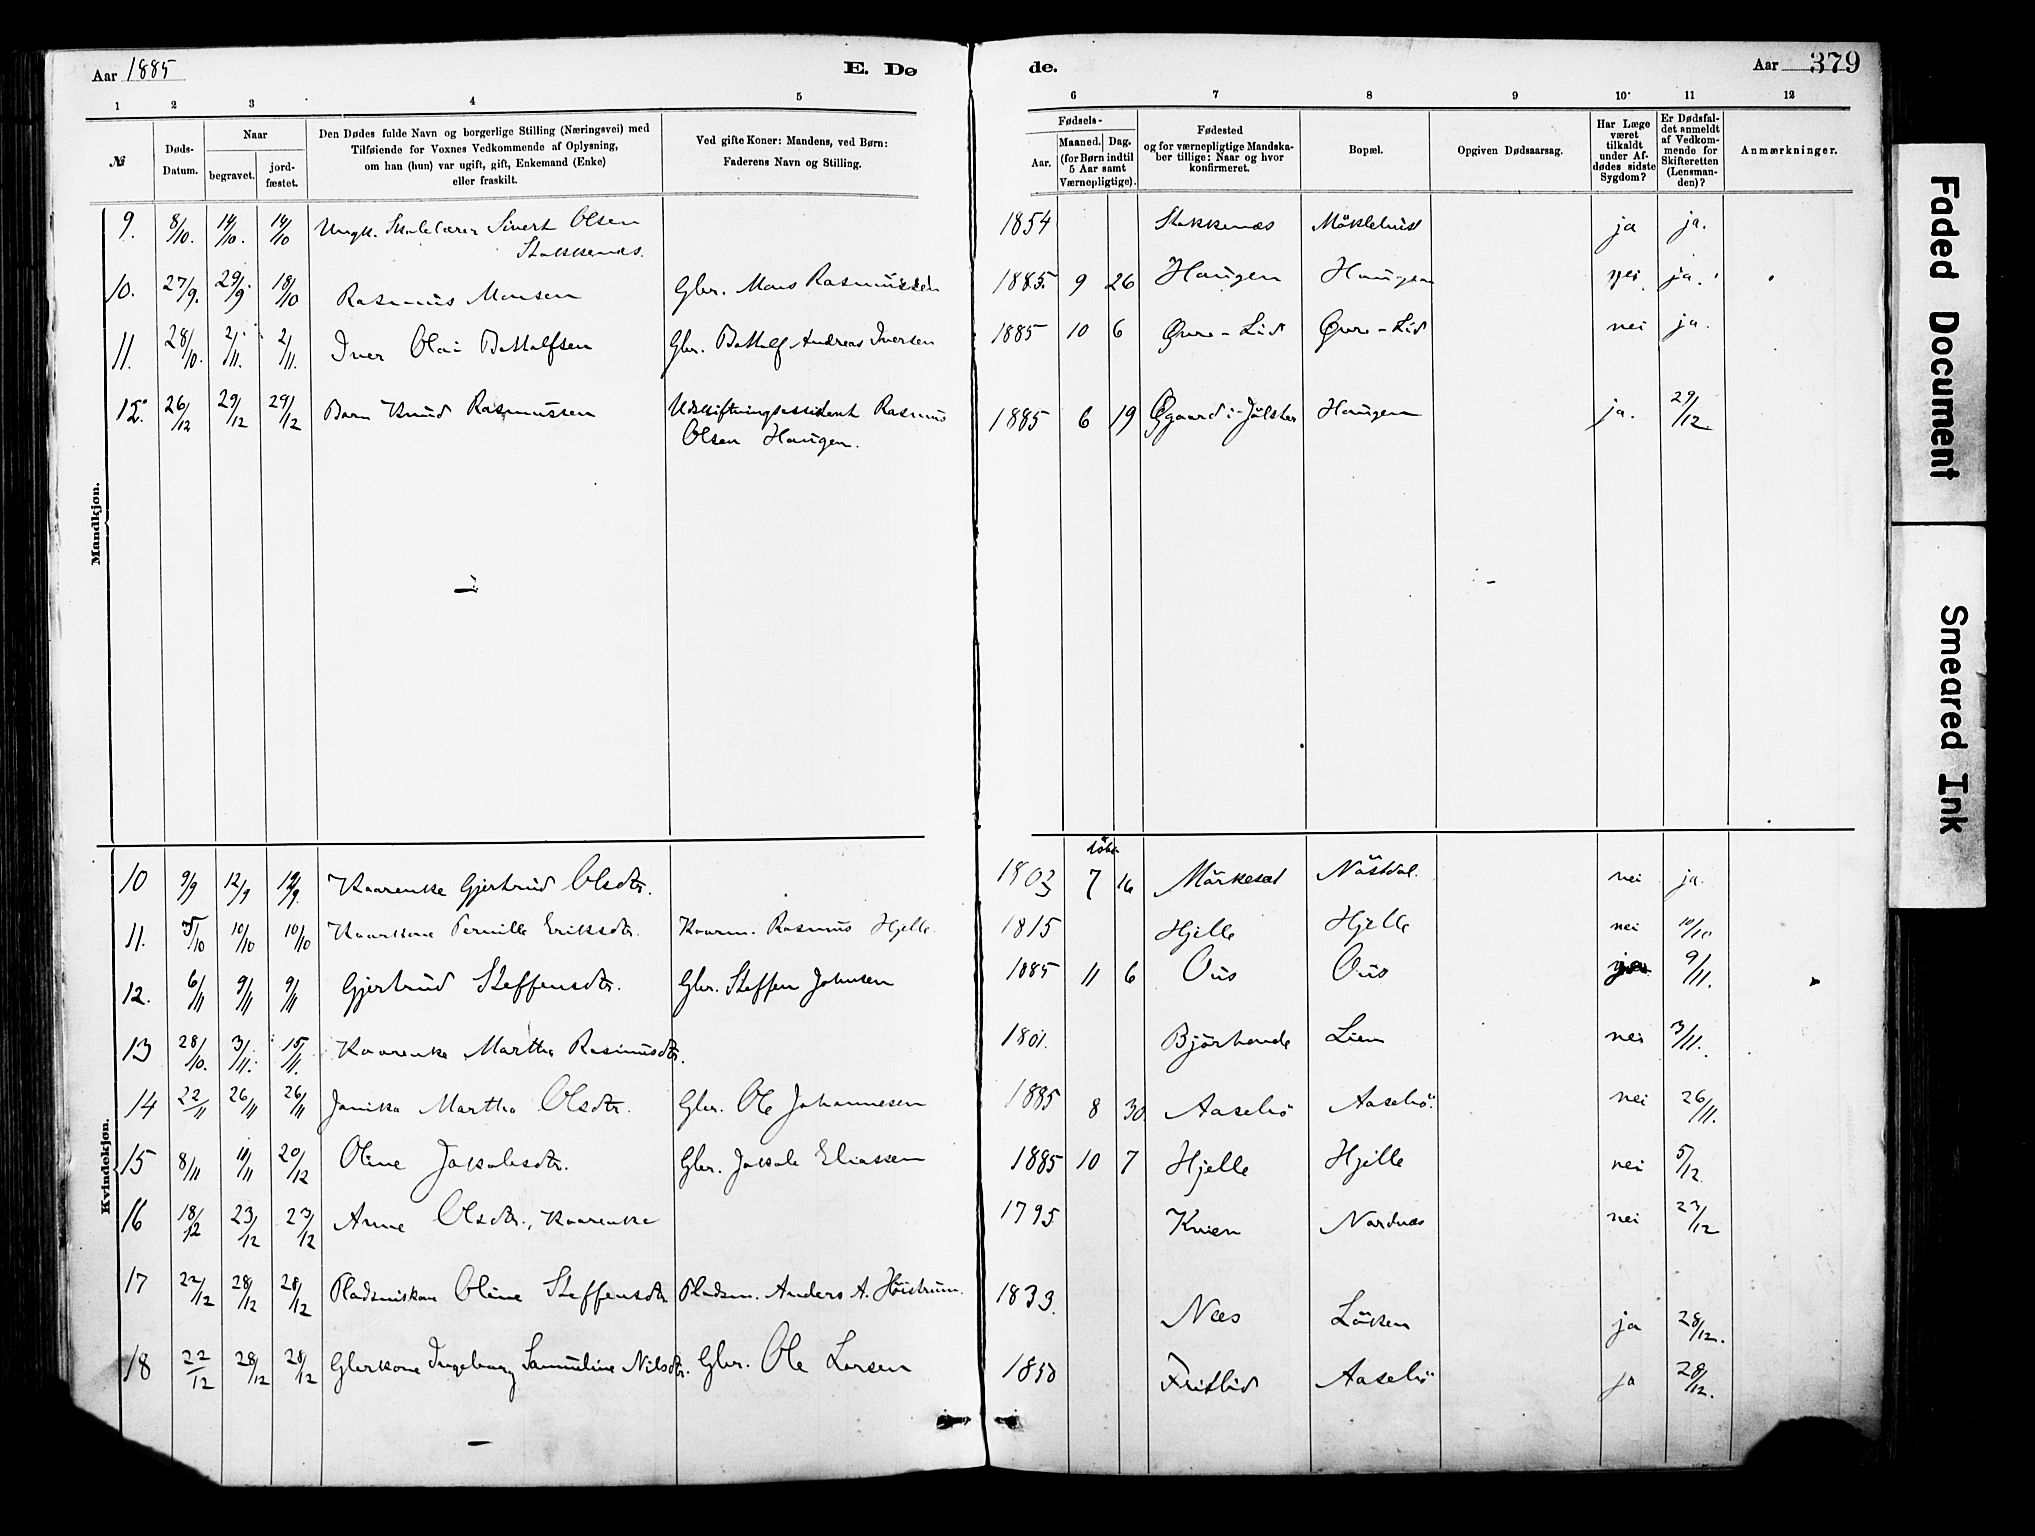 Aar 1885
E. Dø
de.
Aar
379
1 2 3 4 5 6 7 8 9 10 11 12
№
Døds-
Datum.
Naar
begravet.
jord-
fæstet.
Den Dødes fulde Navn og borgerlige Stilling (Næringsvei) med
Tilføiende for Voxnes Vedkommende af Oplysning,
om han (hun) var ugift, gift, Enkemand (Enke)
eller fraskilt.
Ved gifte Koner: Mandens, ved Børn:
Faderens Navn og Stilling.
Fødsels-
Aar.
Maaned. Dag.
(for Børn indtil
5 Aar samt
Værnepligtige).
Fødested
og for værnepligtige Mandska-
ber tillige: Naar og hvor
konfirmeret.
Bopæl.
Opgiven Dødsaarsag.
Har Læge
været
tilkaldt
under Af-
dødes sidste
Sygdom?
Er Dødsfal-
det anmeldt
af Vedkom-
mende for
Skifteretten
(Lensman-
den)?
Anmærkninger.
Mandkjøn.
9. 8/10. 14/10. 14/10 Ungk. Skolelærer Sivert Olsen 1854 Stokkenæs Möklebust ja ja.
Stokkenæs.
10. 27/9. 29/9 18/10 Rasmus Monsen Gbr. Mons Rasmussen 1885. 9 26 Haugen Haugen nei ja.
11. 28/10. 2/11. 2/11. Iver Olai Bottolfsen Gbr. Bottolf Andreas Iversen 1885 10 6 Øvre-Lid Øvre-Lid nei ja.
12. 26/12 29/12 29/12 Barn Knud Rasmussen Udskiftningsassistent Rasmus 1885 6 19 Øgaard i Jölster Haugen ja. 29/12
Olsen Haugen.
Kvindekjøn.
10 9/9 12/9 12/9. Kaarenke Gjertrud Olsdtr. 1803 7 16 Mörkesæt Nöstdal. nei ja.
11. 5/10 10/10 10/10 Kaarkone Pernille Eriksdtr. Kaarm. Rasmus Hjelle 1815 Hjelle Hjelle nei 10/10
12. 6/11 9/11 9/11 Gjertrud Steffensdtr. Gbr. Steffen Johnsen 1885 11 6 Ous Ous 9/11.
13 28/10. 3/11. 15/11. Kaarenke Martha Rasmusdtr. 1801. Björhovde Lien nei 3/11.
14 22/11 26/11 26/11 Janika Martha Olsdtr. Gbr. Ole Johannesen 1885 8 30. Aasebö Aasebö. nei 26/11.
15 8/11 11/11 20/12 Oline Jakobsdtr. Gbr. Jakob Eliassen 1885 10 7 Hjelle Hjelle nei 5/12.
16 18/12 23/12 23/12 Anne Olsdtr., Kaarenke 1795 Kvien Nordnæs nei 23/12
17 22/12 28/12 28/12 Pladsmskone Oline Steffensdtr. Pladsm. Anders A. 1833. Næs Löken ja 28/12.
18 22/12 28/12 28/12 Gbrkone Ingeborg Samueline Nilsdtr. Gbr. Ole Larsen 1850 Aasebö ja 28/12.
Faded Document
Smeared Ink